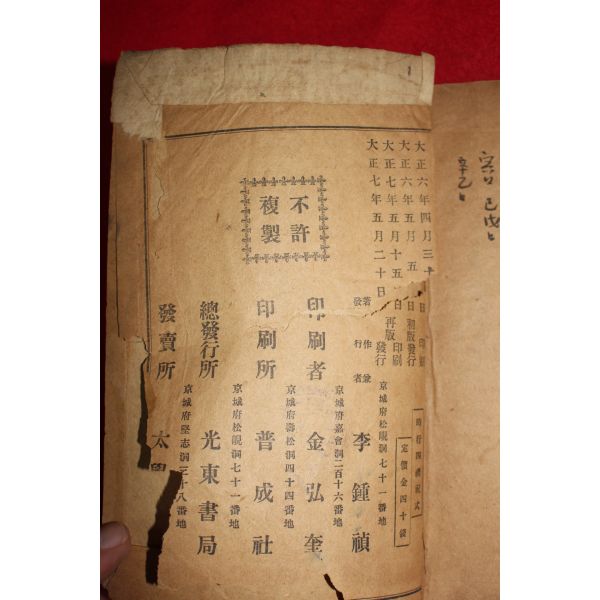 大正六年四月三十日 印刷
大正六年五月 五日 初版發行
大正七年五月十五日 再版印刷
大正七年五月二十日 發行
時行四禮祝式
定價金四十錢
不許
複製
京城府松峴洞七十一番地
著作兼
發行者 李鍾禎
京城府嘉會洞二百十六番地
印刷者 金弘奎
京城府壽松洞四十四番地
印刷所 普成社
京城府松峴洞七十一番地
總發行所 光東書局
京城府堅志洞三十八番地
發賣所 太學